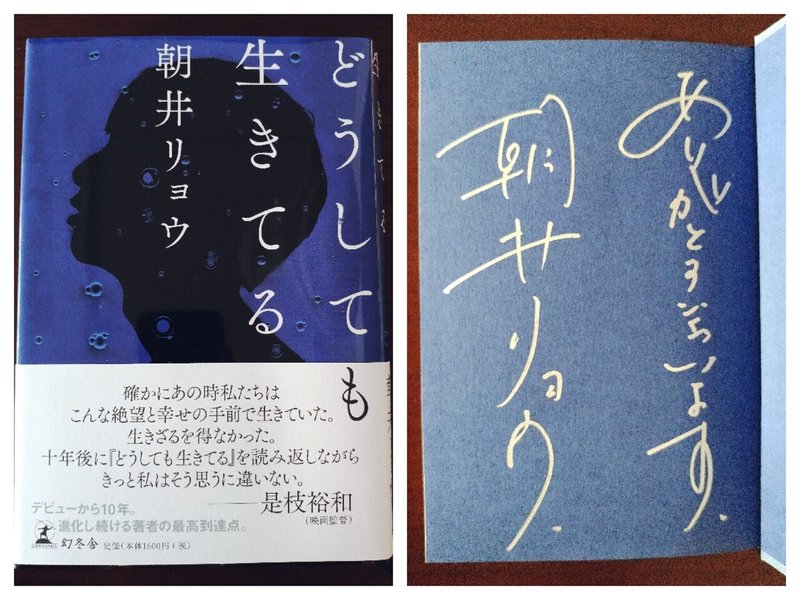 どうしても
生きてる
朝井リョウ
確かにあの時私たちは
こんな絶望と幸せの手前で生きていた。
生きざるを得なかった。
十年後に『どうしても生きてる』を読み返しながら
きっと私はそう思うに違いない。
——是枝裕和
(映画監督)
デビューから10年。
進化し続ける著者の最高到達点。
幻冬舎 定価(本体1600円+税)
ありがとうございます.
朝井リョウ.